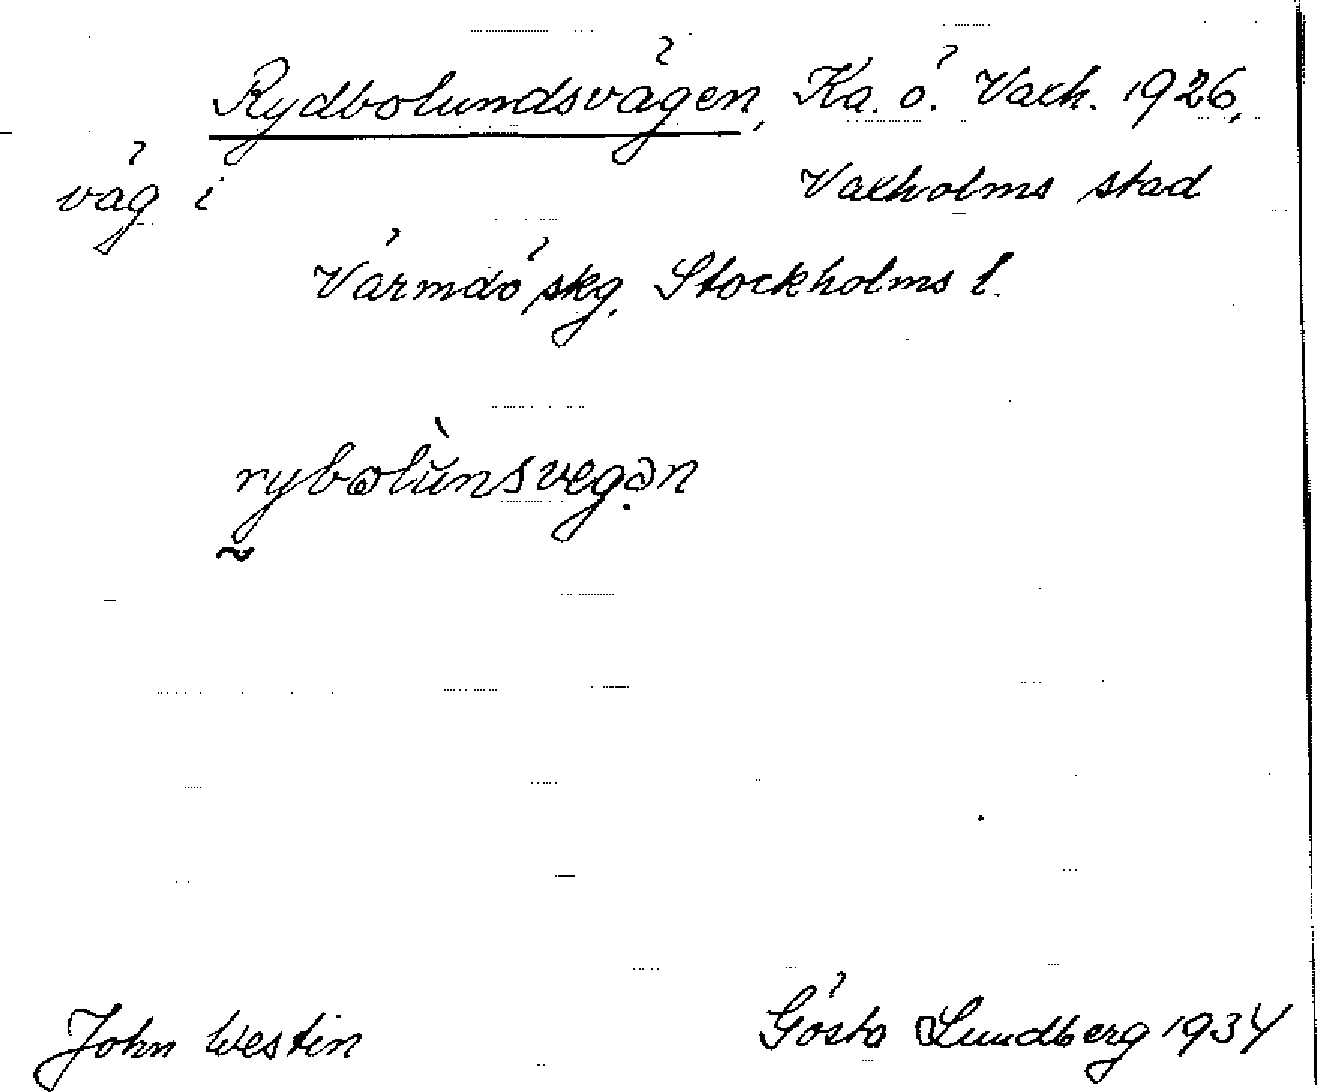 Rydbolundsvägen, Ka. ö. Vaxh. 1926,
väg i Vaxholms stad
Värmdö skg, Stockholms l.
rybolùnsvegən
John Westin Gösta Lundberg 1934